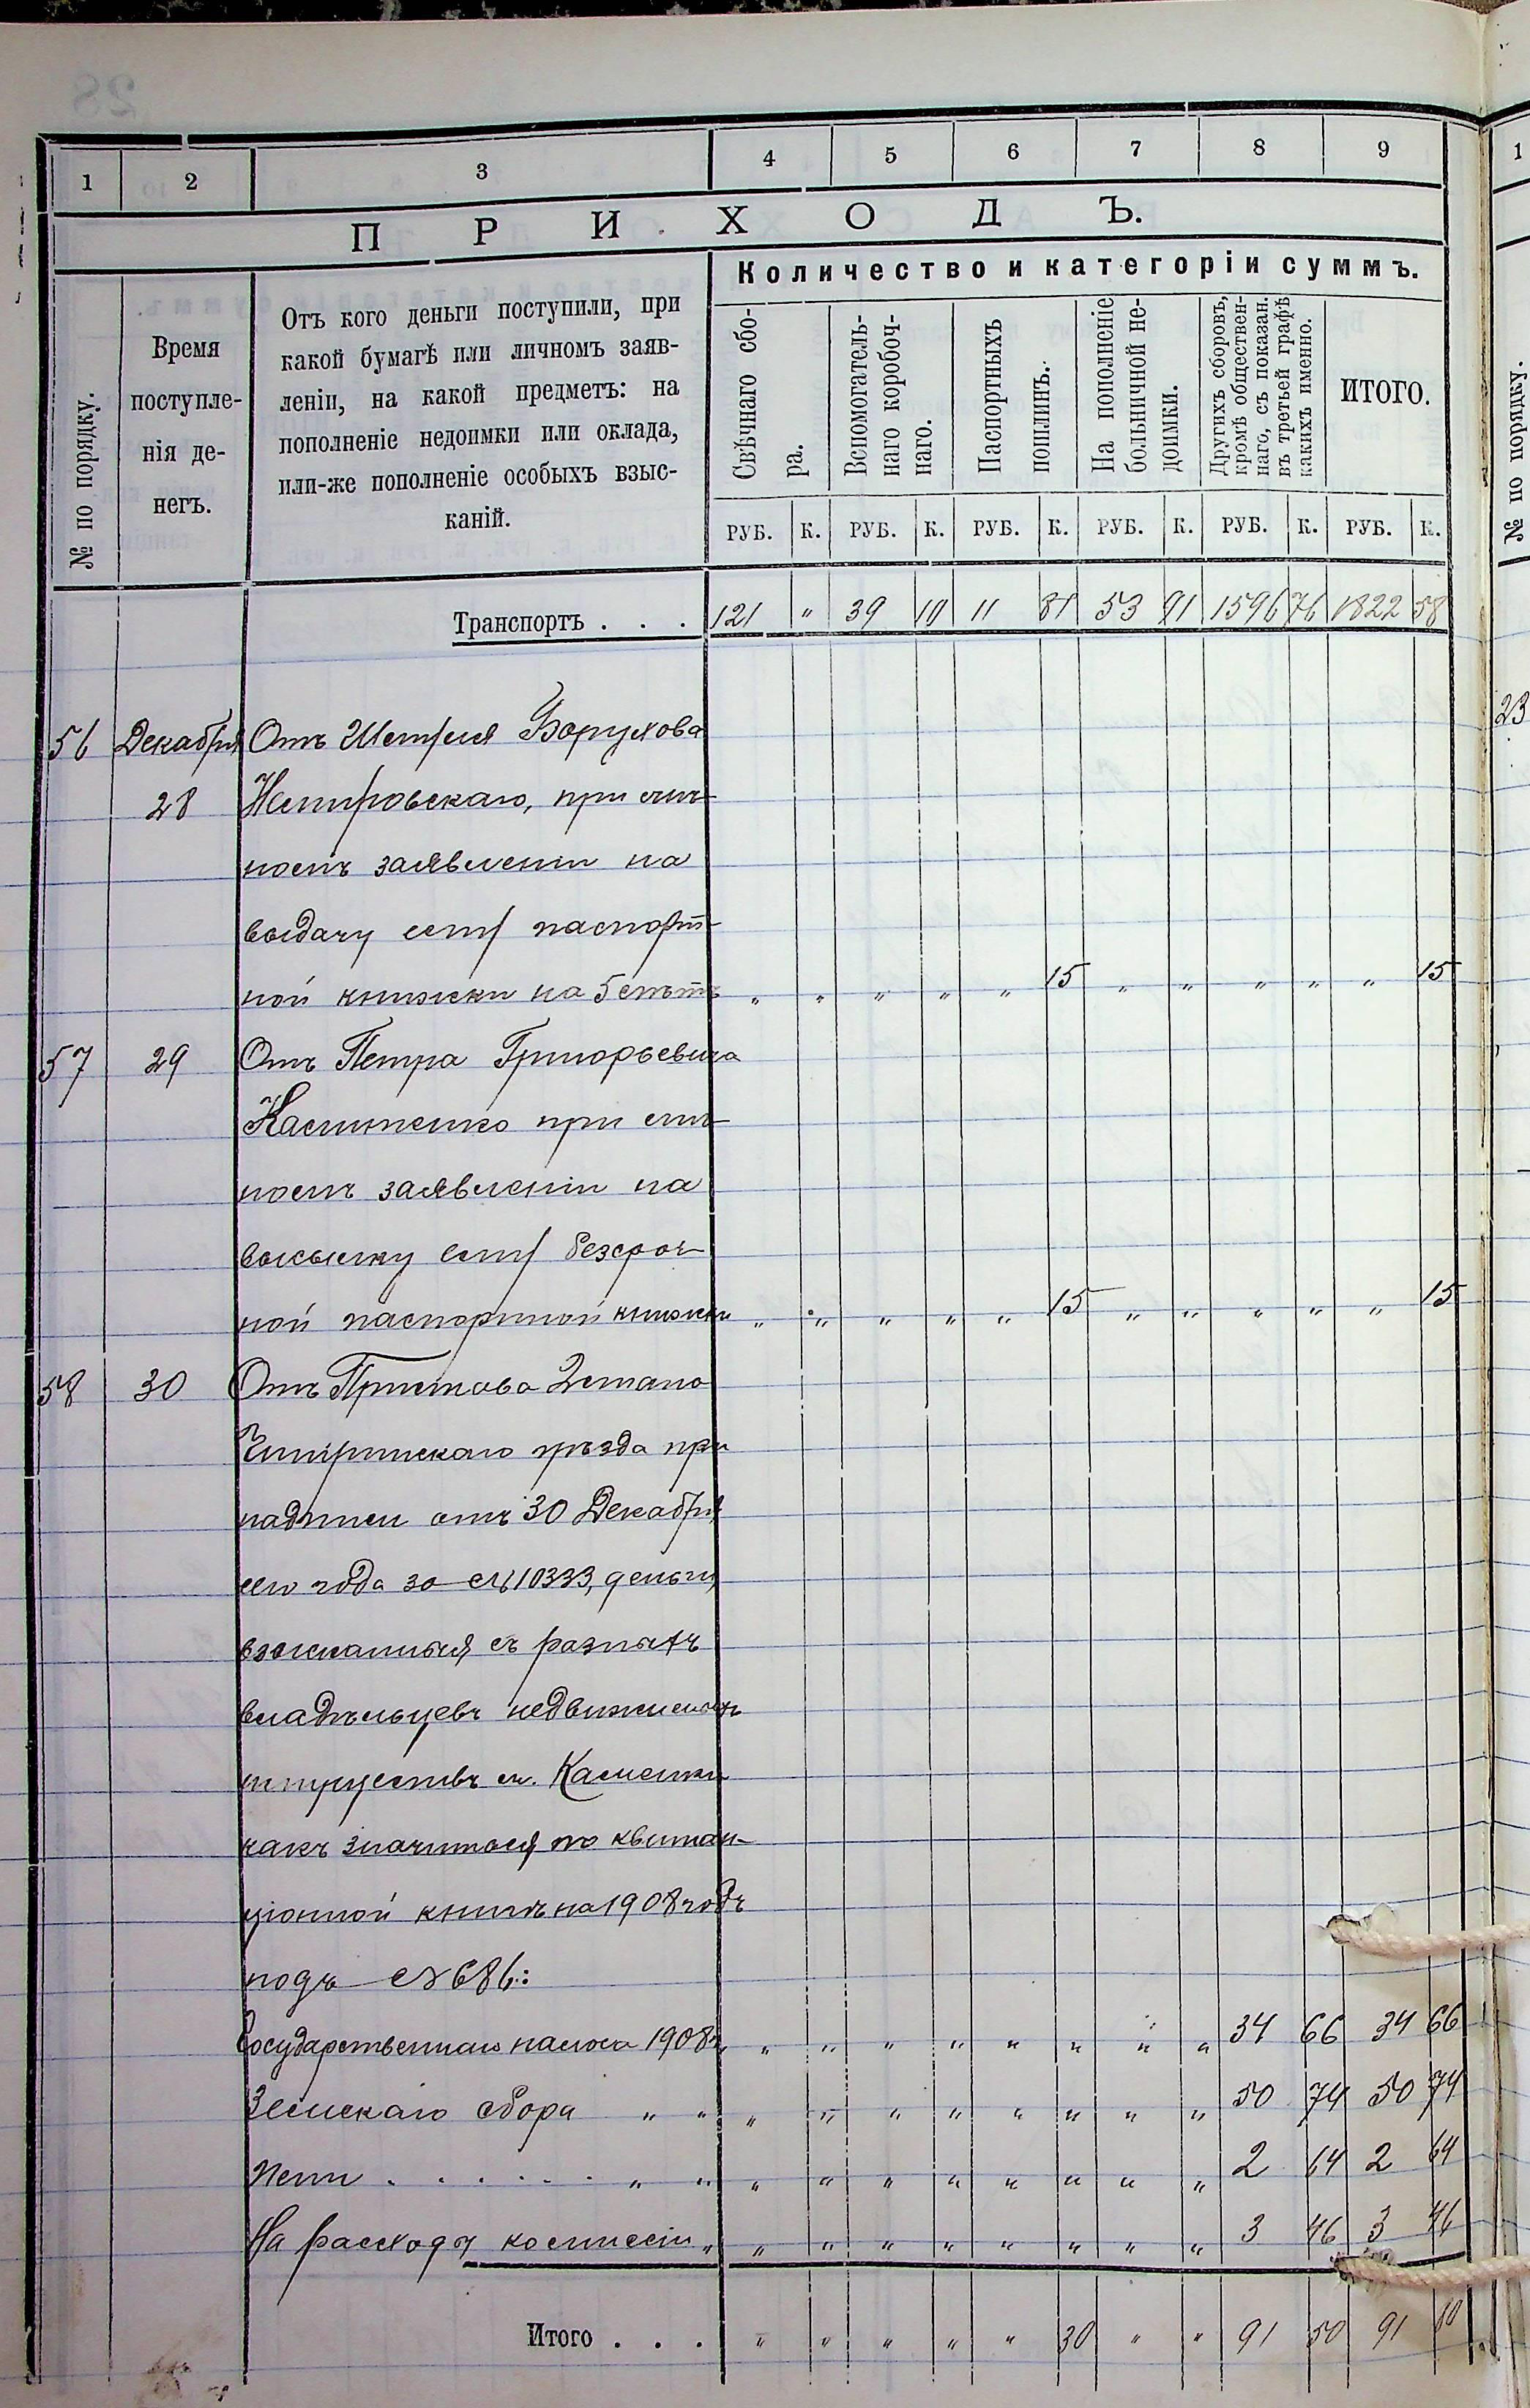 1 2 3 4 5 6 7 8 9
ПРИХОДЪ.
№ по порядку.
Время
поступле-
нія де-
негъ.
Отъ кого деньги поступили, при
какой бумагѣ или личномъ заяв-
леніи, на какой предметъ: на
пополненіе недоимки или оклада,
или-же пополненіе особыхъ взыс-
каній.
Количество и категоріи суммъ.
Свѣчнаго сбо-
ра.
Вспомогатель-
наго коробоч-
наго.
Паспортныхъ
пошлинъ.
На пополненіе
больничной не-
доимки.
Другихъ сборовъ,
кромѣ обществен-
наго, съ показан.
въ третьей графѣ
какихъ именно.
ИТОГО.
РУБ. К. РУБ. К. РУБ. К. РУБ. К. РУБ. К. РУБ. К.
Транспортъ . . . 121 " 39 10 11 81 53 91 1596 76 1822 58
56 Декабря Отъ Борухова
28 при лич-
номъ заявленіи на
выдачу ему паспорт-
ной книжки на 5 лѣтъ " " " " " 15 " " " " " 15
57 29 Отъ Петра Григорьевича
при лич-
номъ заявленіи на
высылку ему безсроч-
ной паспортной книжки " " " " " 15 " " " " " 15
58 30 Отъ Пристава 2 стана
Чигиринскаго уѣзда при
надписи отъ 30 Декабря
сего года за № 10333, деньги,
взысканныя съ разныхъ
владѣльцевъ недвижимыхъ
имуществъ м. Каменки
какъ значится по квитан-
ціонной книгѣ на 1908 годъ
подъ № 686:
Государственнаго налога 1908 г. " " " " " " " " 34 66 34 66
Земскаго сбора " " " " " " " " " " 50 74 50 74
Пени . . . . . . " " " " " " " " " " 2 64 2 64
На расходы коммиссіи " " " " " " " " " 3 46 3 46
Итого . . . " " " " " 30 " " 91 50 91 80
1
№ по порядку.
23